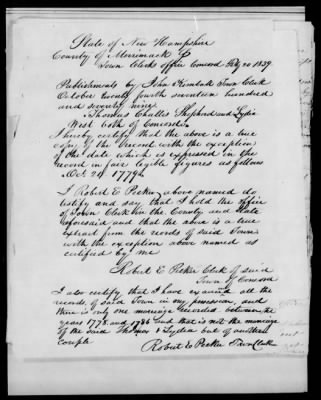 State of New Hampshire
County of Merrimack
Town Clerks office Concord Feby 20 1839
Publishments by John Kimball Town Clerk
October twenty fourth seventeen hundred
and seventy nine
Thomas Challis Shephard and Lydia
West both of Concord
I hereby certify that the above is a true
copy of the record with the exception
of the date which is expressed in the
record in fair legible figures as follows
Oct 24. 1779
I Robert E Pecker above named do
testify and say, that I hold the office
of Town Clerk in the County and State
aforesaid and that the above is a true
extract from the records of said Town
with the exception above named as
certified by me
Robert E Pecker Clerk of said
Town of Concord
I also certify that I have examd all the
records of said Town in my possession, and
there is only one marriage recorded between the
years 1778 and 1786 and that is not the marriage
of the said Thomas & Lydia but of another
couple
Robert E Pecker Town Clerk